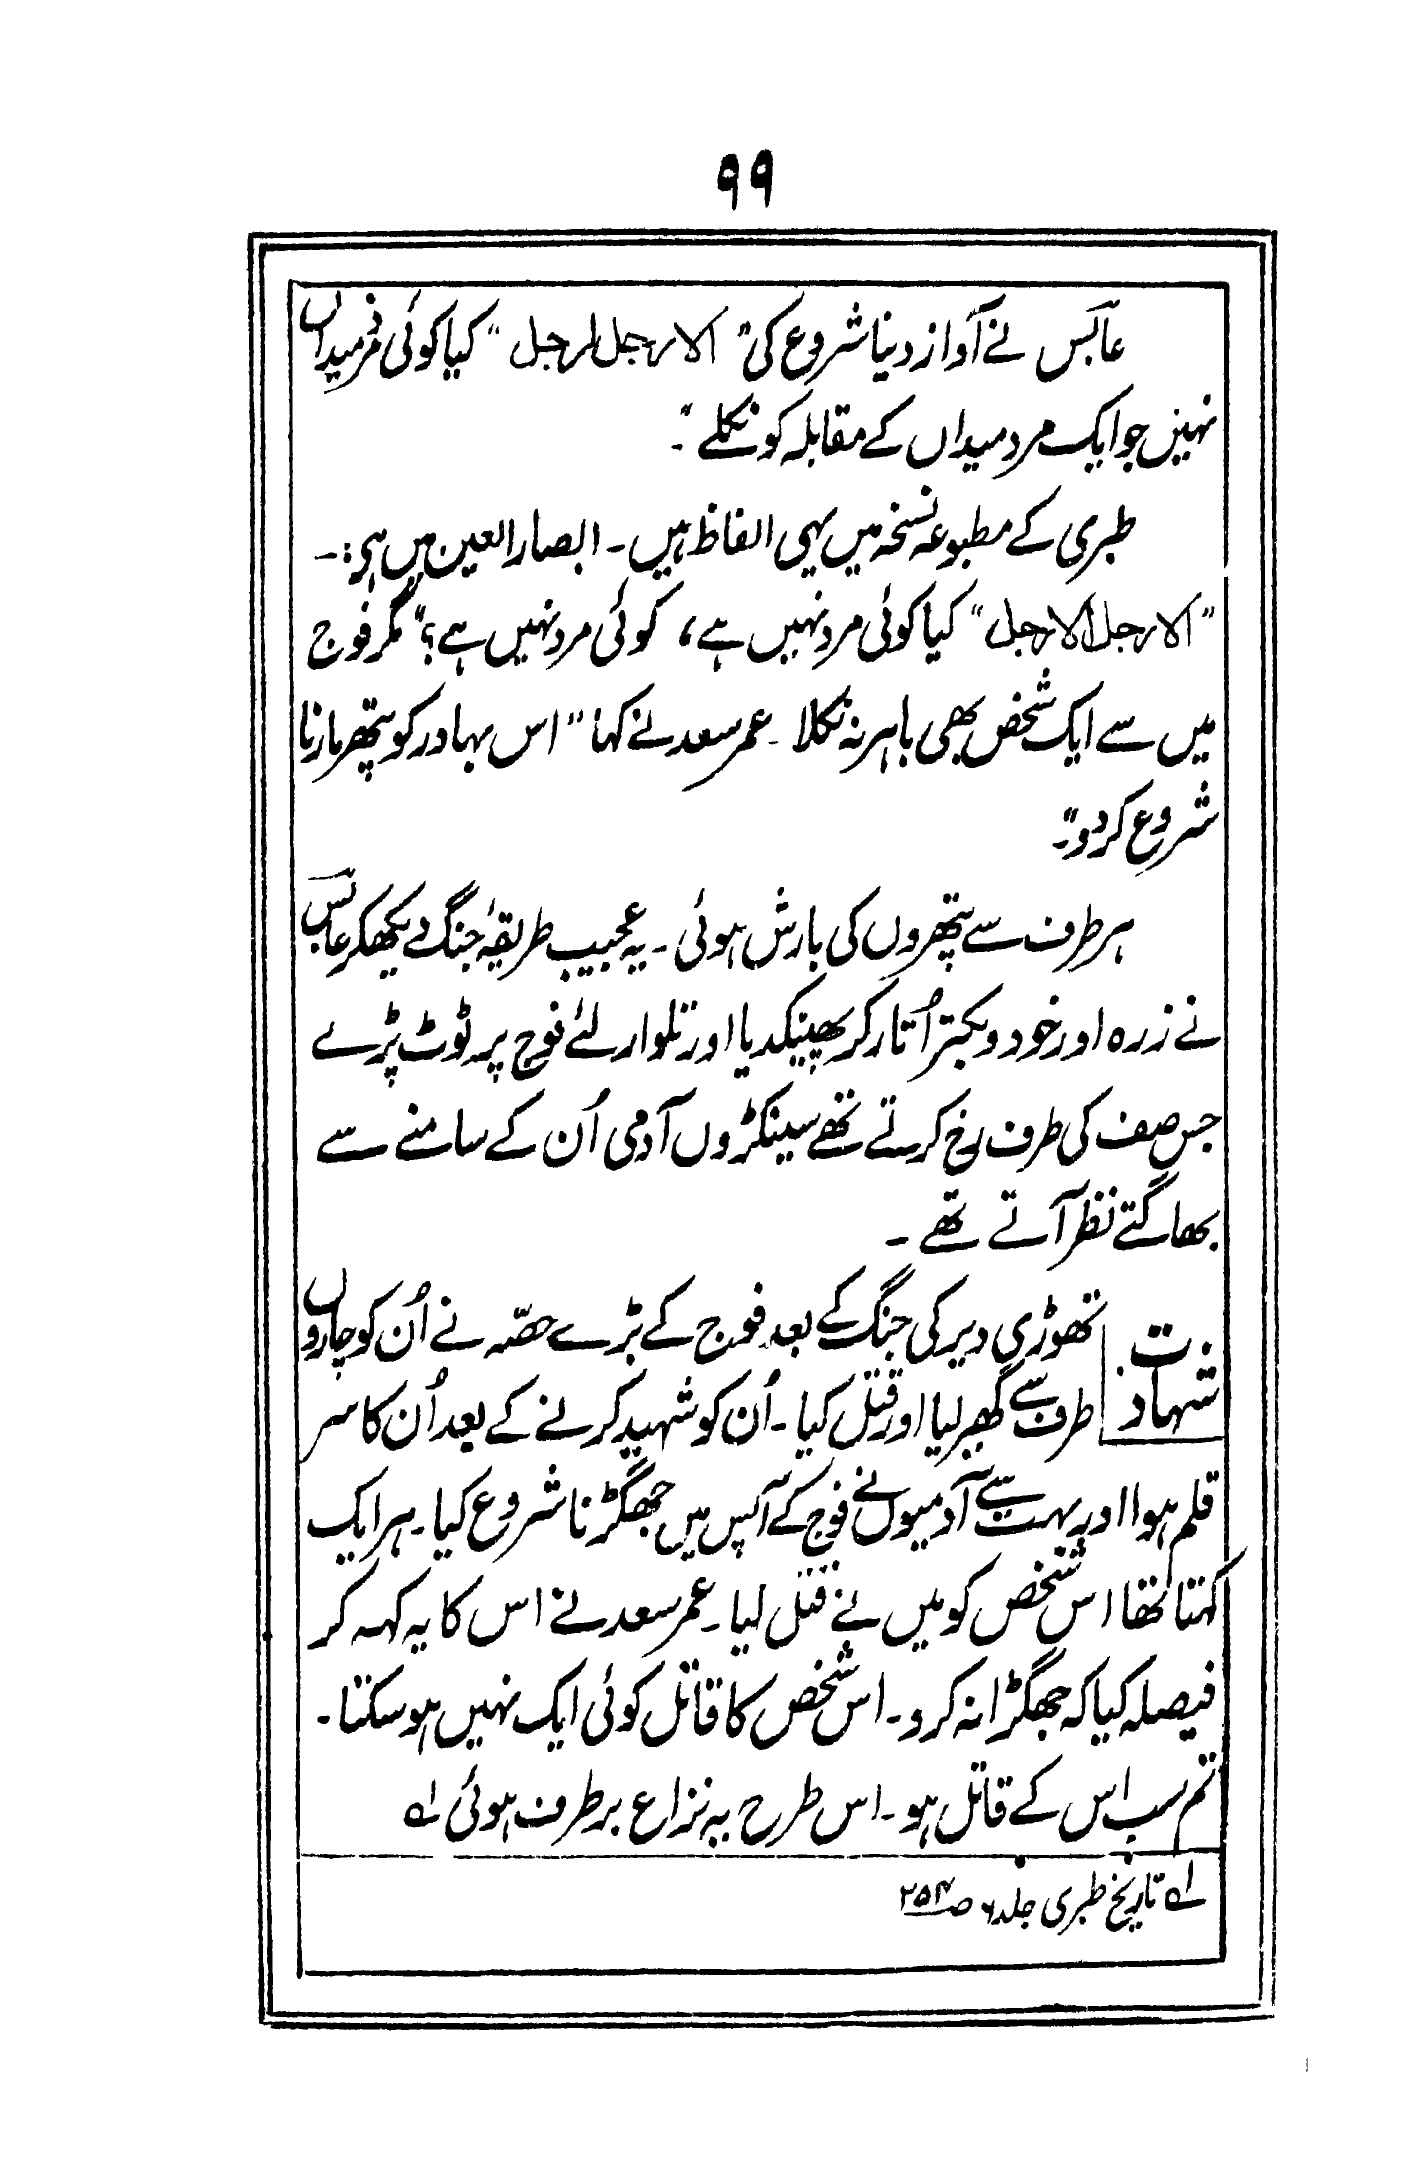 ۹۹
عابس نے آواز دینا شروع کی "الا رجل لرجل" کیا کوئی مرد میداں
نہیں جو ایک مرد میداں کے مقابلہ کو نکلے"۔
طبری کے مطبوعہ نسخہ میں یہی الفاظ ہیں۔ ابصار العین میں ہی:۔
"الا رجل الا رجل" کیا کوئی مرد نہیں ہے، کوئی مرد نہیں ہے؟" مگر فوج
میں سے ایک شخص بھی باہر نہ نکلا۔ عمر سعد نے کہا "اس بہادر کو پتھر مارنا
شروع کر دو"۔
ہر طرف سے پتھروں کی بارش ہوئی۔ یہ عجیب طریقۂ جنگ دیکھکر عابس
نے زرہ اور خود و بکتر اُتار کر پھینکدیا اور تلوار لئے فوج پر ٹوٹ پڑے
جس صف کی طرف رخ کرتے تھے سینکڑوں آدمی اُن کے سامنے سے
بھاگتے نظر آتے تھے۔
شہادت
تھوڑی دیر کی جنگ کے بعد فوج کے بڑے حصّہ نے اُن کو چاروں
طرف سے گھیر لیا اور قتل کیا۔ اُن کو شہید کرنے کے بعد اُن کا سر
قلم ہوا اور بہت سے آدمیوں نے فوج کے آپس میں جھگڑنا شروع کیا۔ ہر ایک
کہتا تھا اس شخص کو میں نے قتل کیا۔ عمر سعد نے اس کا یہ کہہ کر
فیصلہ کیا کہ جھگڑا نہ کرو۔ اس شخص کا قاتل کوئی ایک نہیں ہو سکتا۔
تم سب اس کے قاتل ہو۔ اس طرح یہ نزاع برطرف ہوئی ۱ے
۱ے تاریخ طبری جلد ۶ ص۲۵۴